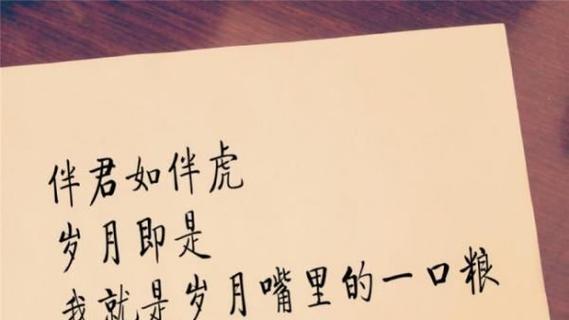 伴君如伴虎
岁月即是
我就是岁月嘴里的一口粮